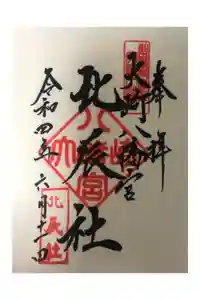 奉拝
大崎八幡宮
北辰社
令和四年六月十一日
八幡宮
北辰社